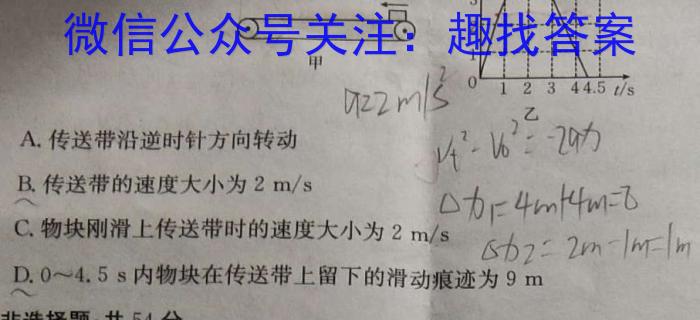 微信公众号关注：趣找答案
3
甲
0 1 2 3 4 4.5 t/s
乙
a=2m/s²
A. 传送带沿逆时针方向转动
Vt²-V0²=-2ax
B. 传送带的速度大小为 2 m/s
Δx1=4m+4m=8
C. 物块刚滑上传送带时的速度大小为 2 m/s
Δx2=2m-1m=1m
D. 0～4.5 s 内物块在传送带上留下的滑动痕迹为 9 m
非选择题 共 54 分